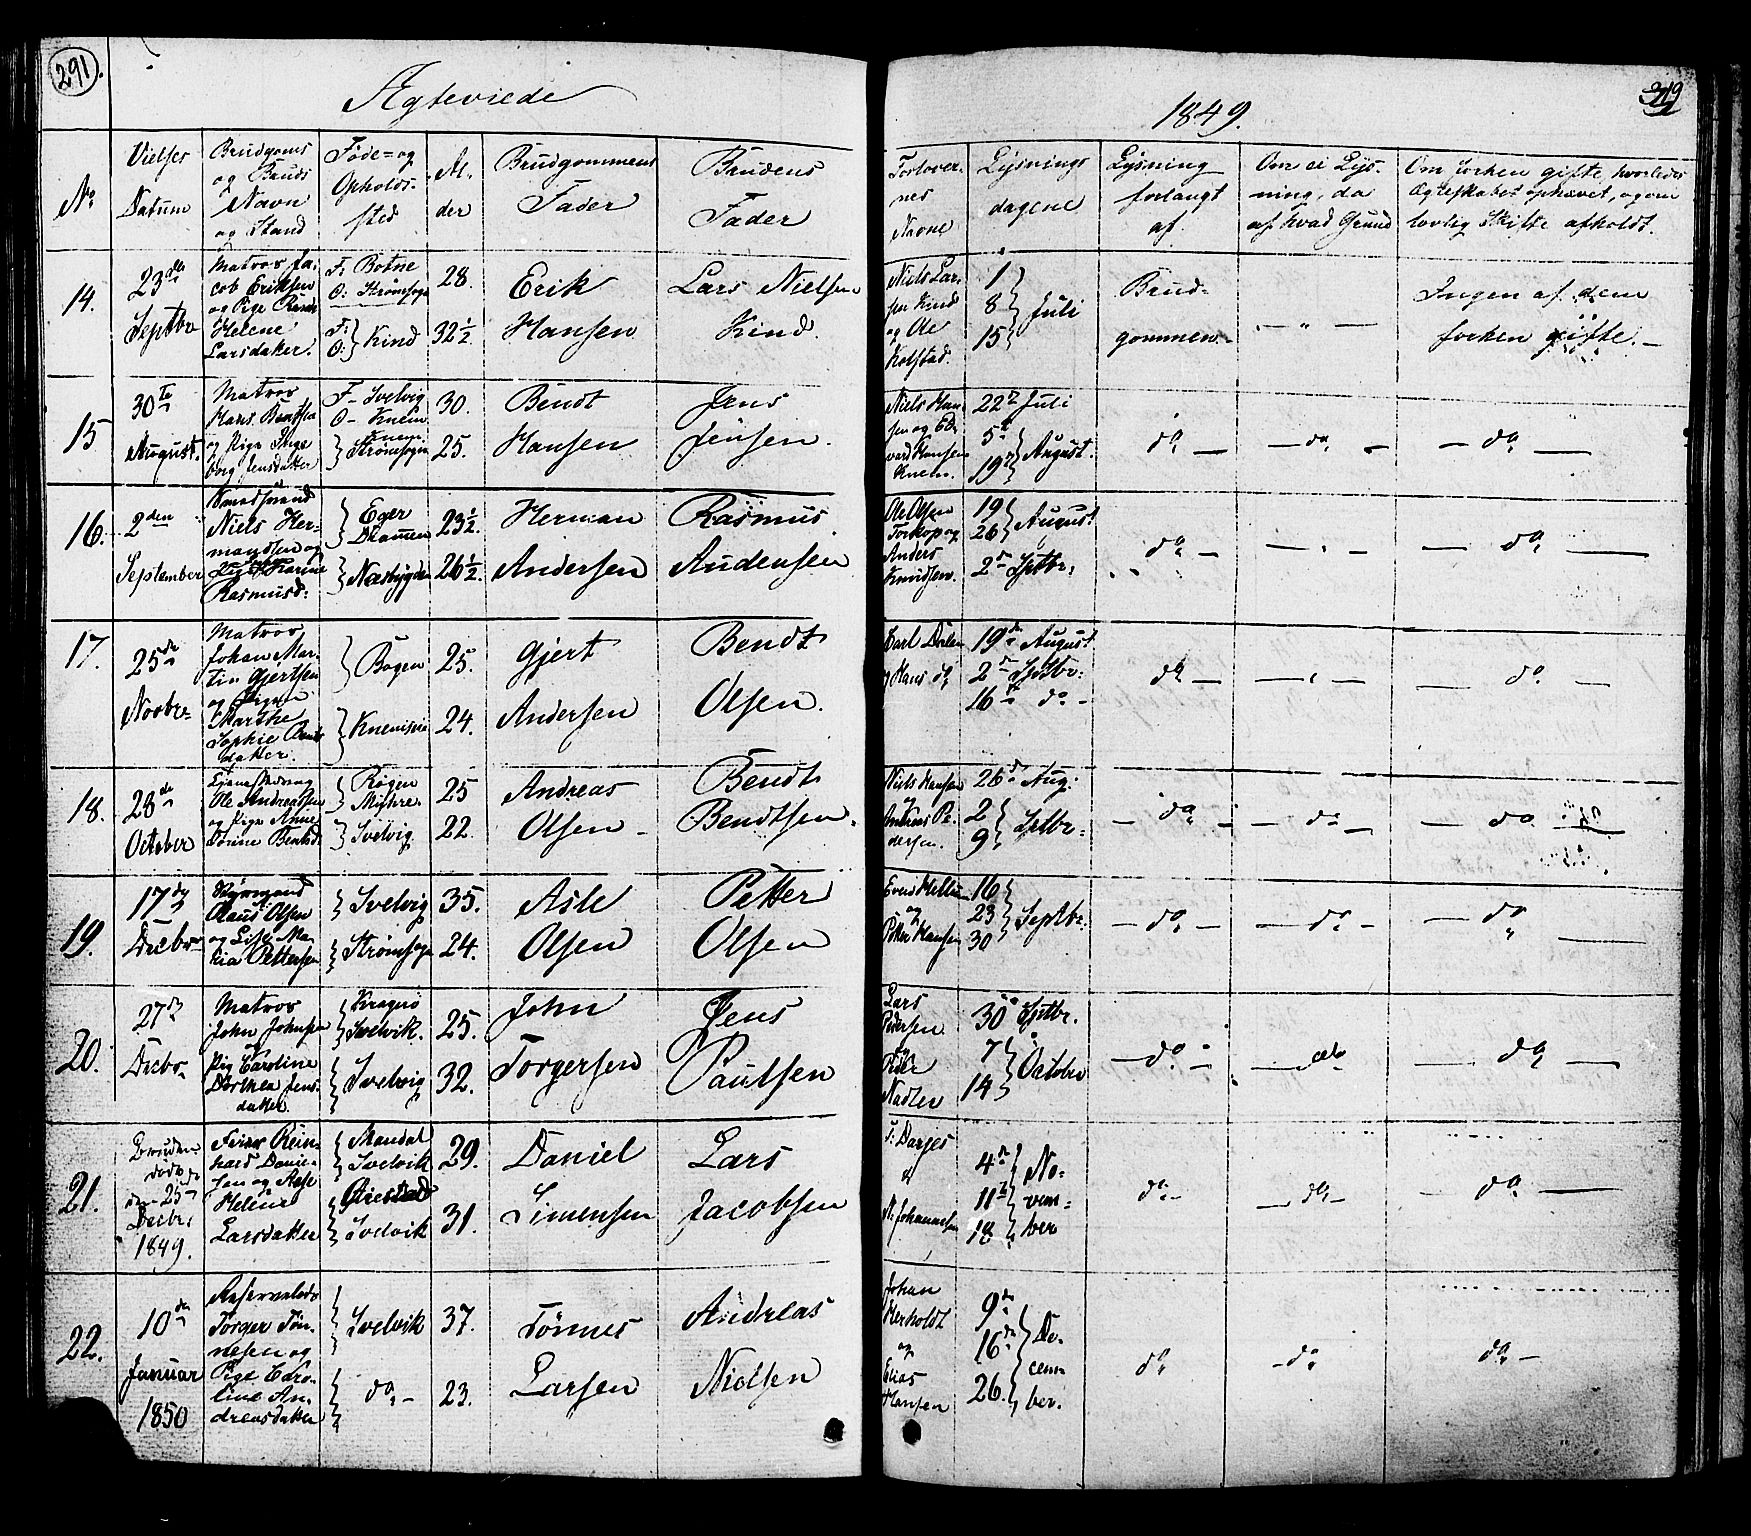 291.
Ægteviede
1849.
319
No
Vielses Datum
Brudgoms og Bruds Navn og Stand
Føde= og Opholds- sted
Al- der
Brudgommens Fader
Brudens Fader
Forlover- nes Navne
Lysnings dagene
Lysning forlangt af
Om ei Lys- ning, da af hvad Grund
Om forhen gifte, hvorledes Ægteskabet ophævet, og om lovlig Skifte afholdt.
14.
23de Septbr
Matros Ja- cob Eriksen og Pige Helene Larsdatter.
F: Botne O: Strømsogn
F: O: } Kind
28.
32½.
Erik Hansen
Lars Nielsen Kind.
Niels Lar- sen Kind og Ole Kolstad.
1 8 15 } Juli
Brud- gommen.-
— " —
Ingen af dem forhen gifte. —
15
30te August.
Matros Hans Bentsen og Pige Inge borg Jensdatter
F- Svelvig O- Knem
} Strømsogn
30.
25.
Bendt Hansen
Jens Jensen.
Niels Han- sen og Ed- vard Hansen Knem.
22de Juli
5te 19de } August.
do —
— do —
— do —
16.
2den September
Niels Her- mansen og Pige Karine Rasmusd:
} Eger Drammen
} Næsbygden
23½.
26½.
Herman Andersen
Rasmus Andersen
Ole Olsen Torkop og Anders Knudsen.
19 26 } August
2den Septbr.
do —
— " —
— do —
17.
25de Novbr-
Matros Johan Mar- tin Gjertsen og Pigen Marthe Sophie Bents datter.
} Bogen
}
25.
24.
Gjert Andersen
Bendt Olsen.
Carl Dalen og Hans do
19de August
2den Septbr.
16de do -
do —
— " —
— do —
18.
28de October
Ole Andreassen og Pige Anne Bentsd:
} Røgen
} Svelvig
25
22.
Andreas Olsen -
Bendt Bendtsen.
Niels Hansen og Andreas Pe- dersen.
26de Aug:
2 9 } Septbr-
— do —
— do —
— do —
19.
17de Decbr-
Styrmand Claus Olsen og Lise Ma- ria Pettersen
} Svelvig
} Strømsogn
35.
24.
Asle Olsen
Petter Olsen
Even Mellum og Peter Hansen
16 23 30 } Septbr.
— do —
— do —
— do —
20.
27de Decbr-
Matros John Johnsen og Pig Caroline Dorthea Jens- datter.
} Kragerø Svelvik.
} Svelvig
25.
32.
John Torgersen
Jens Paulsen
Lars Pedersen og Peder Nadler
30te Septbr.
7 14 } October
— do —
— do —
— do —
21.
Bruden døde den 25de Decbr. 1849.
Rein- hard Danie- lsen og Helene Larsdatter
} Mandal Svelvik
} Svelvik
29.
31.
Daniel Simensen
Lars Jacobsen
: Darjes & N: Johannesen
4de 11te 18 } No- vem- ber
do —
— do —
— do —
22.
10de Januar 1850
Torger Tøn- nesen og Pige Caro- line An- dreasdatter
} Svelvik
} do -
37.
23.
Tønnes Larsen
Andreas Nielsen
Johan Herholdt og Elias Hansen
9de 16de 26. } De- cem- ber.
do
- do
do -